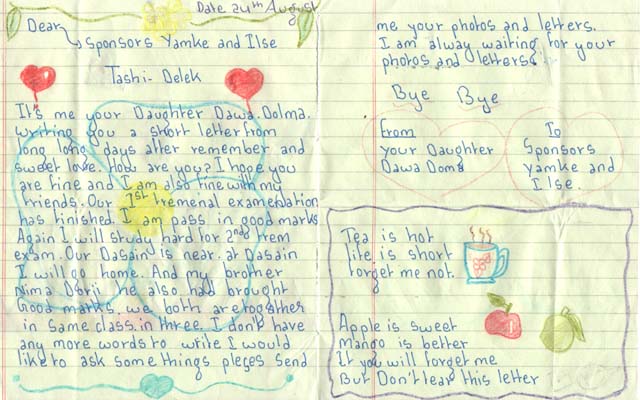 Date 24th August
Dear
Sponsors Yamke and Ilse
Tashi-Delek
It's me your Daughter Dawa Dolma.
writing you a short letter from
long long days after remember and
sweet love. How are you? I hope you
are fine and I am also fine with my
friends. Our 1st tremenal examendation
has finished. I am pass in good marks
Again I will study hard for 2nd trem
exam. Our Dasain is near. at Dasain
I will go home. And my brother
Nima Dorji he also had brought
Good marks. we both are together
in same class. in three. I don't have
any more words to write I would
like to ask some things pleges send
me your photos and letters.
I am alway waiting for your
photos and letters.
Bye Bye
From
your Daughter
Dawa Doma
To
Sponsors
yamke and
Ilse.
Tea is hot
life is short
forget me not.
Apple is sweet
mango is better
If you will forget me
But Don't tear this letter